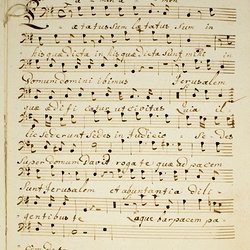 a men a men
Lætatus sum lætatus sum in
his quæ dicta in his quæ dicta sunt mihi in
Domum domini ibimus Jerusalem
quæ ædificatur ut civitas Quia il
lic sederunt sedes in Judicio sedes
super domum David rogate quæ ad pacem
sunt Jerusalem et abundantia dili
gentibus te fiat pax pa